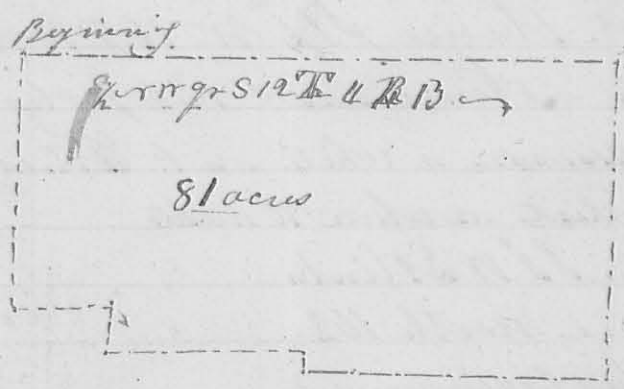 Beginning
nw qr S 12 T 11 R 13
81 acres